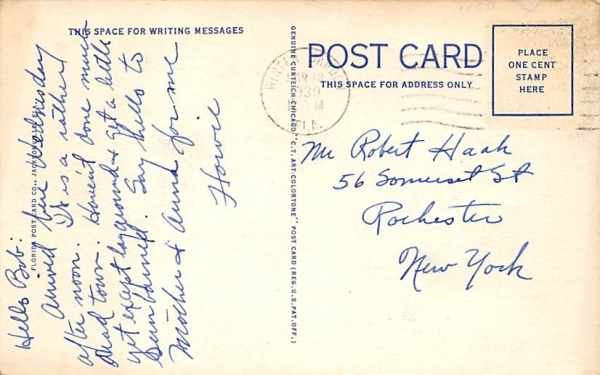 THIS SPACE FOR WRITING MESSAGES
Hello Bob:
Arrived here Wednesday
after noon. It is a rather
dead town. Haven't done much
yet except lay around & get a little
sunburned. Say hello to
Mother & Anna for me
Howie
FLORIDA POST CARD CO., JACKSONVILLE
GENUINE CURTEICH-CHICAGO "C.T. ART-COLORTONE" POST CARD (REG. U.S. PAT. OFF.)
POST CARD
THIS SPACE FOR ADDRESS ONLY
PLACE
ONE CENT
STAMP
HERE
WINTER
FLA.
Mr Robert Haak
56 Somerset St
Rochester
New York